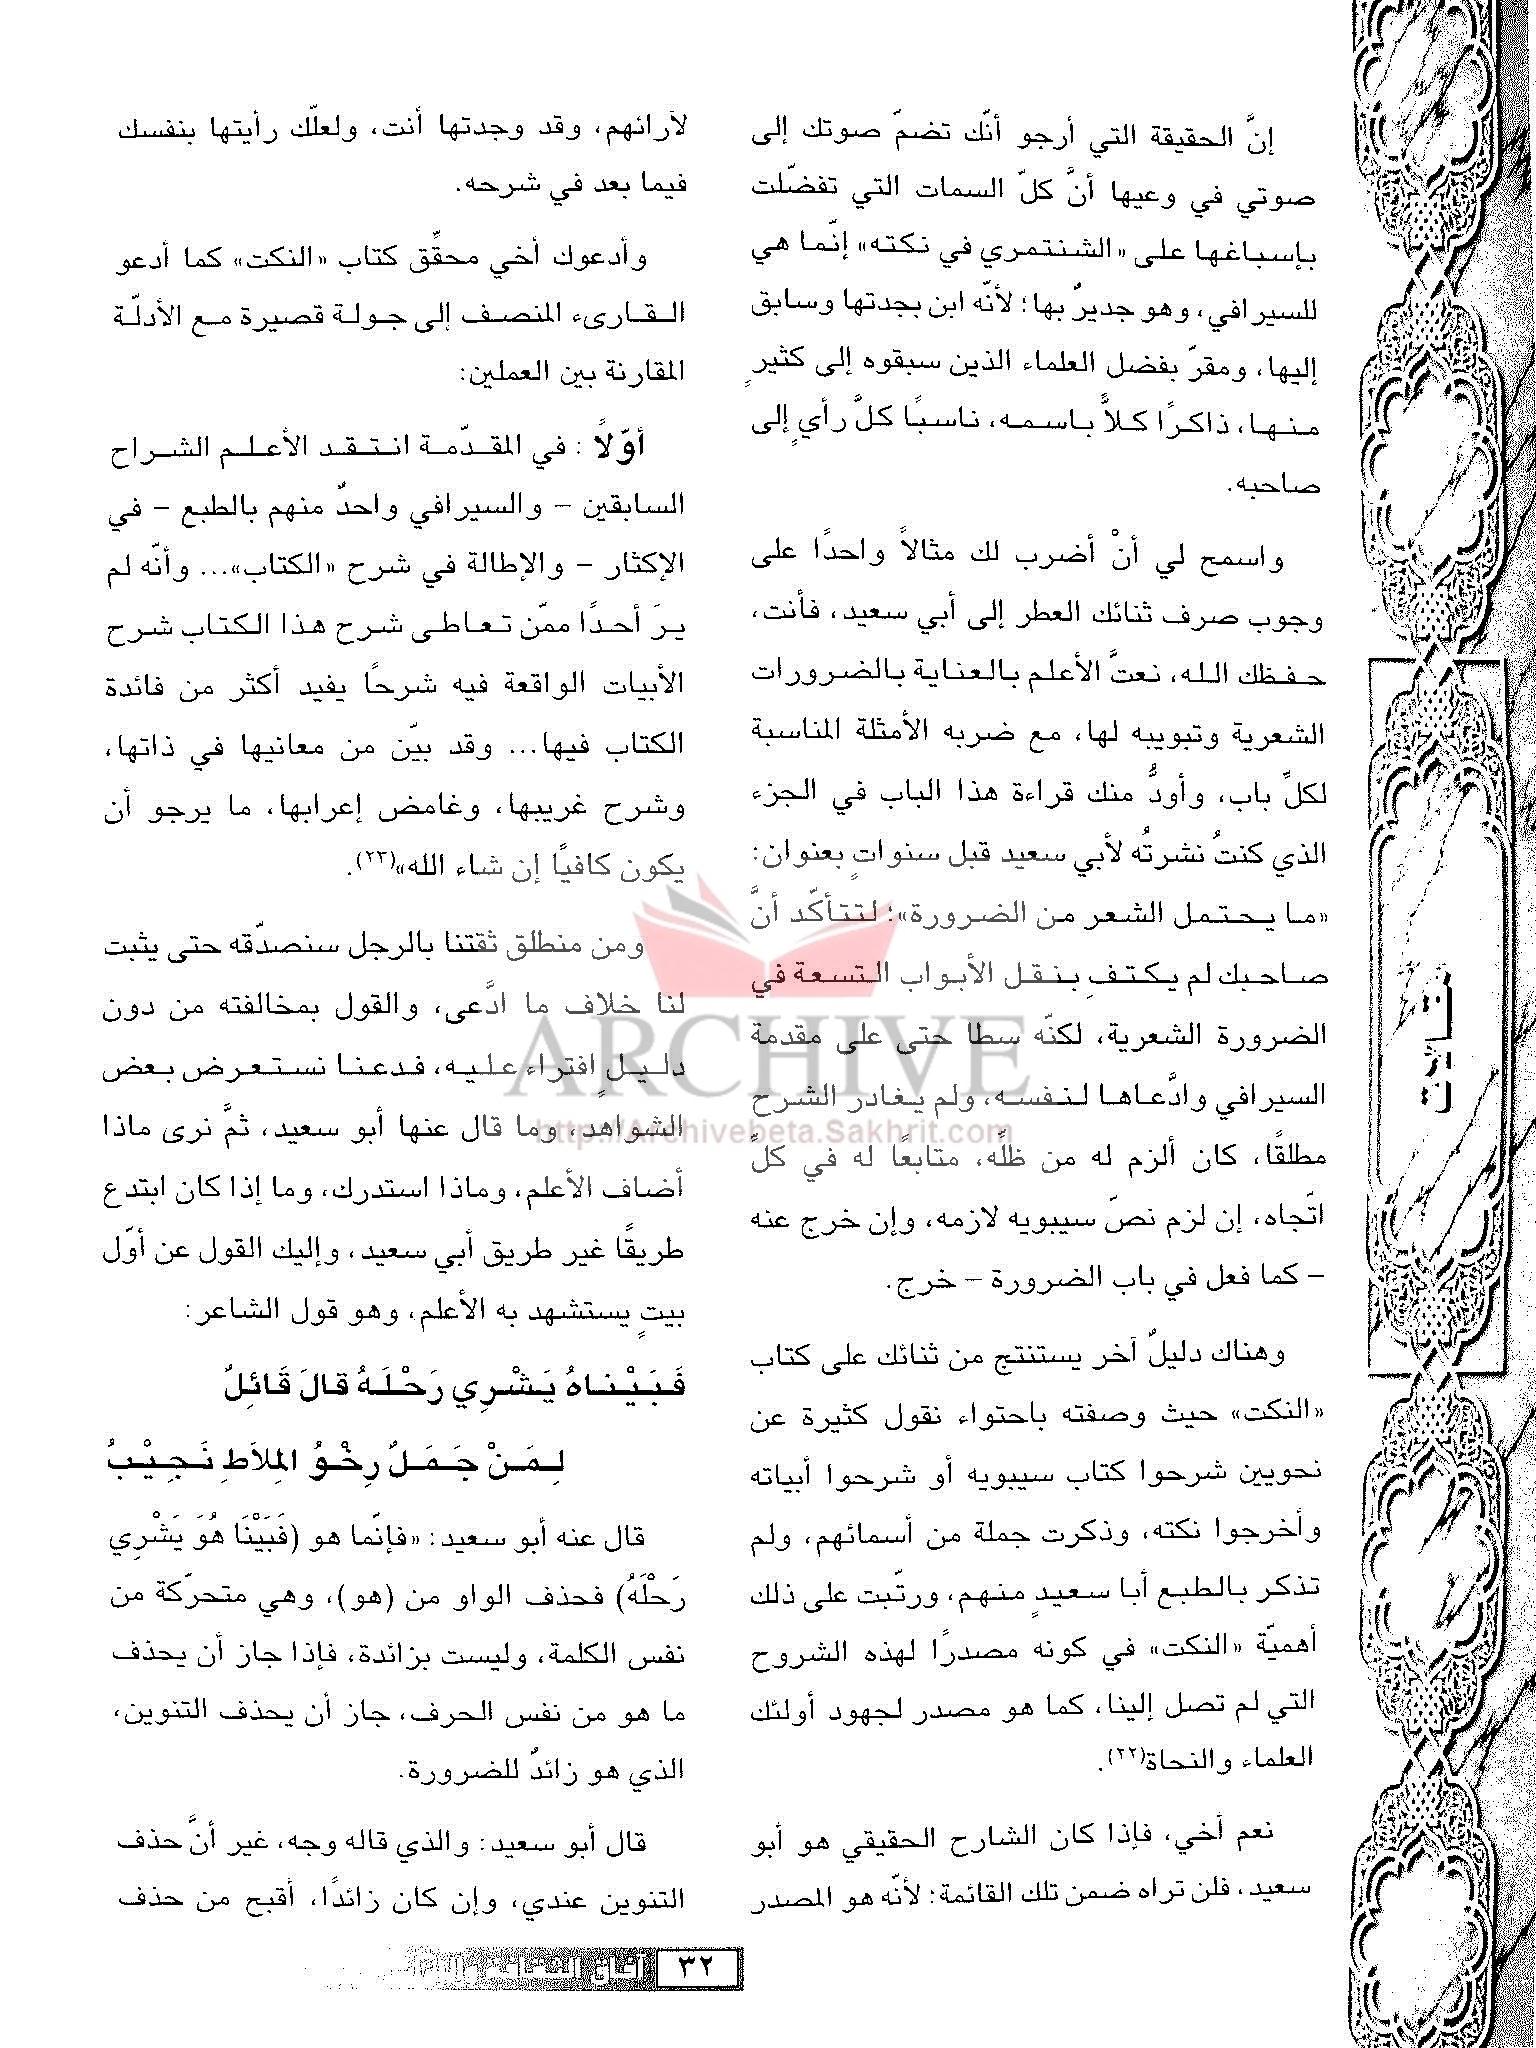 إنَّ الحقيقة التي أرجو أنّك تضمّ صوتك إلى
صوتي في وعيها أنَّ كلّ السمات التي تفضّلت
بإسباغها على «الشنتمري في نكته» إنّما هي
للسيرافي، وهو جديرٌ بها؛ لأنّه ابن بجدتها وسابق
إليها، ومقرّ بفضل العلماء الذين سبقوه إلى كثيرٍ
منها، ذاكرًا كلاًّ باسمه، ناسبًا كلَّ رأيٍ إلى
صاحبه.
واسمح لي أنْ أضرب لك مثالاً واحدًا على
وجوب صرف ثنائك العطر إلى أبي سعيد، فأنت،
حفظك الله، نعتَّ الأعلم بالعناية بالضرورات
الشعرية وتبويبه لها، مع ضربه الأمثلة المناسبة
لكلِّ باب، وأودُّ منك قراءة هذا الباب في الجزء
الذي كنتُ نشرتُه لأبي سعيد قبل سنواتٍ بعنوان:
«ما يحتمل الشعر من الضرورة»؛ لتتأكّد أنَّ
صاحبك لم يكتفِ بنقل الأبواب التسعة في
الضرورة الشعرية، لكنّه سطا حتى على مقدمة
السيرافي وادَّعاها لنفسه، ولم يغادر الشرح
مطلقًا، كان ألزم له من ظلِّه، متابعًا له في كلِّ
اتّجاه، إن لزم نصّ سيبويه لازمه، وإن خرج عنه
– كما فعل في باب الضرورة – خرج.
وهناك دليلٌ آخر يستنتج من ثنائك على كتاب
«النكت» حيث وصفته باحتواء نقول كثيرة عن
نحويين شرحوا كتاب سيبويه أو شرحوا أبياته
وأخرجوا نكته، وذكرت جملة من أسمائهم، ولم
تذكر بالطبع أبا سعيدٍ منهم، ورتّبت على ذلك
أهميّة «النكت» في كونه مصدرًا لهذه الشروح
التي لم تصل إلينا، كما هو مصدر لجهود أولئك
العلماء والنحاة(٢٢).
نعم أخي، فإذا كان الشارح الحقيقي هو أبو
سعيد، فلن تراه ضمن تلك القائمة؛ لأنّه هو المصدر
لآرائهم، وقد وجدتها أنت، ولعلّك رأيتها بنفسك
فيما بعد في شرحه.
وأدعوك أخي محقِّق كتاب «النكت» كما أدعو
القارىء المنصف إلى جولة قصيرة مع الأدلّة
المقارنة بين العملين:
أوّلاً : في المقدّمة انتقد الأعلم الشراح
السابقين – والسيرافي واحدٌ منهم بالطبع – في
الإكثار – والإطالة في شرح «الكتاب»... وأنّه لم
يرَ أحدًا ممّن تعاطى شرح هذا الكتاب شرح
الأبيات الواقعة فيه شرحاً يفيد أكثر من فائدة
الكتاب فيها... وقد بيّن من معانيها في ذاتها،
وشرح غريبها، وغامض إعرابها، ما يرجو أن
يكون كافيًا إن شاء الله»(٢٣).
ومن منطلق ثقتنا بالرجل سنصدّقه حتى يثبت
لنا خلاف ما ادَّعى، والقول بمخالفته من دون
دليلٍ افتراء عليه، فدعنا نستعرض بعض
الشواهد وما قال عنها أبو سعيد، ثمَّ نرى ماذا
أضاف الأعلم، وماذا استدرك، وما إذا كان ابتدع
طريقًا غير طريق أبي سعيد، وإليك القول عن أوّل
بيتٍ يستشهد به الأعلم، وهو قول الشاعر:
فَبَيْناهُ يَشْرِي رَحْلَهُ قالَ قَائِلٌ
لِمَنْ جَمَلٌ رِخْوُ المِلاَطِ نَجِيْبُ
قال عنه أبو سعيد: «فإنّما هو (فَبَيْنَا هُوَ يَشْرِي
رَحْلَهُ) فحذف الواو من (هو)، وهي متحرّكة من
نفس الكلمة، وليست بزائدة، فإذا جاز أن يحذف
ما هو من نفس الحرف، جاز أن يحذف التنوين،
الذي هو زائدٌ للضرورة.
قال أبو سعيد: والذي قاله وجه، غير أنَّ حذف
التنوين عندي، وإن كان زائدًا، أقبح من حذف
مقالات
ARCHIVE
http://Archivebeta.Sakhrit.com
٣٢
آفاق الثقافة